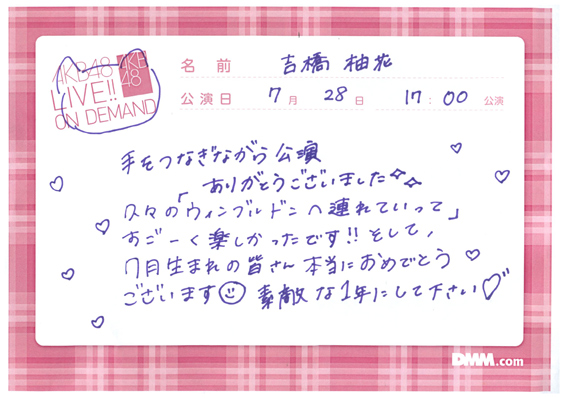 AKB48
LIVE!!
ON DEMAND
AKB
48
名 前 吉橋 柚花
公演日 7月 28日 17:00 公演
手をつなぎながら公演
ありがとうございました
久々の「ウィンブルドンへ連れていって」
すごーく楽しかったです!! そして、
7月生まれの皆さん本当におめでとう
ございます 素敵な1年にして下さい
DMM.com